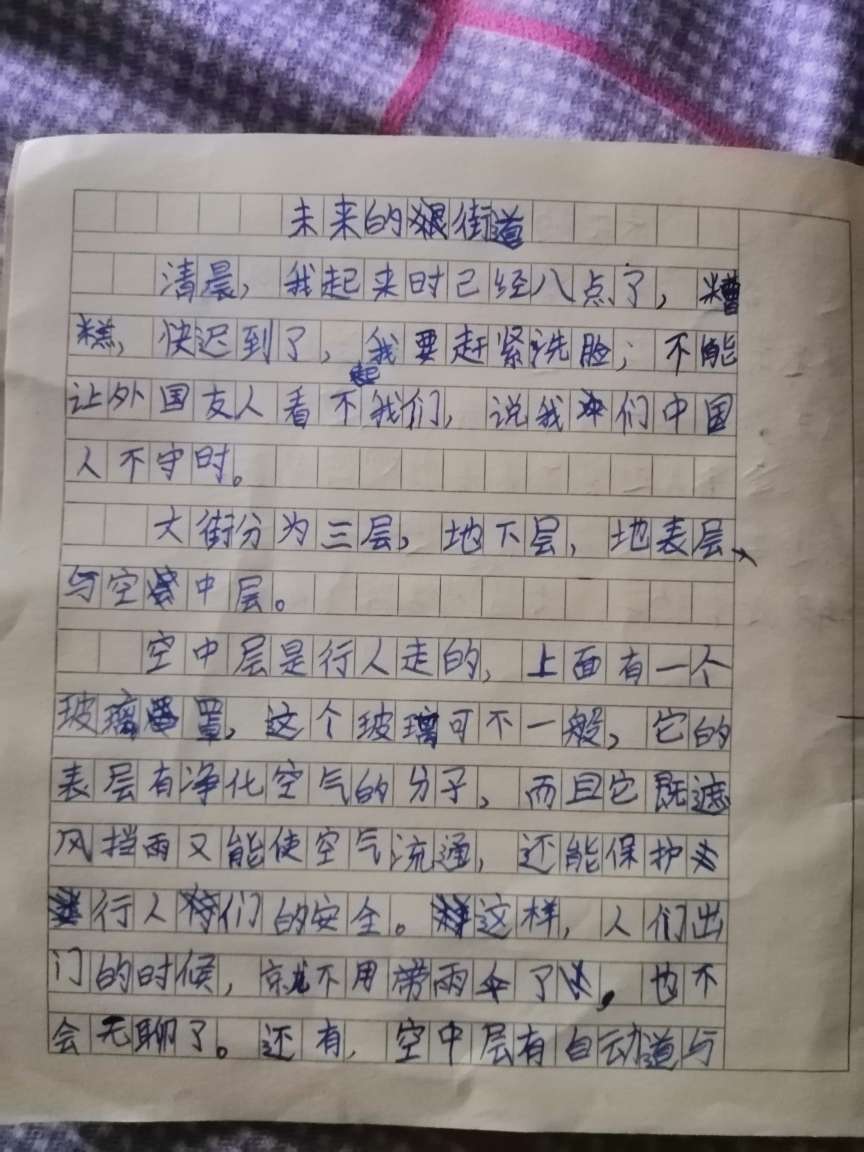 未来的街道
清晨，我起来时已经八点了，糟
糕，快迟到了，我要赶紧洗脸；不能
让外国友人看不起我们，说我们中国
人不守时。
大街分为三层，地下层，地表层、
与空中层。
空中层是行人走的，上面有一个
玻璃罩，这个玻璃可不一般，它的
表层有净化空气的分子，而且它既遮
风挡雨又能使空气流通，还能保护
行人们的安全。这样，人们出
门的时候，就不用带雨伞了，也不
会无聊了。还有，空中层有自动道与